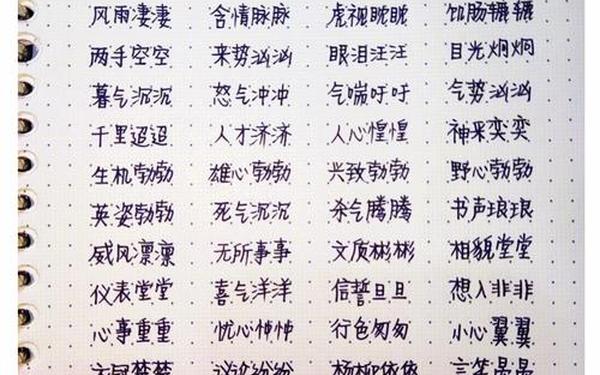 风雨凄凄 含情脉脉 虎视眈眈 饥肠辘辘
两手空空 来势汹汹 眼泪汪汪 目光炯炯
暮气沉沉 怒气冲冲 气喘吁吁 气势汹汹
千里迢迢 人才济济 人心惶惶 神采奕奕
生机勃勃 雄心勃勃 兴致勃勃 野心勃勃
英姿勃勃 死气沉沉 杀气腾腾 书声琅琅
威风凛凛 无所事事 文质彬彬 相貌堂堂
仪表堂堂 喜气洋洋 信誓旦旦 想入非非
心事重重 忧心忡忡 行色匆匆 小心翼翼
衣冠楚楚 议论纷纷 杨柳依依 言笑晏晏